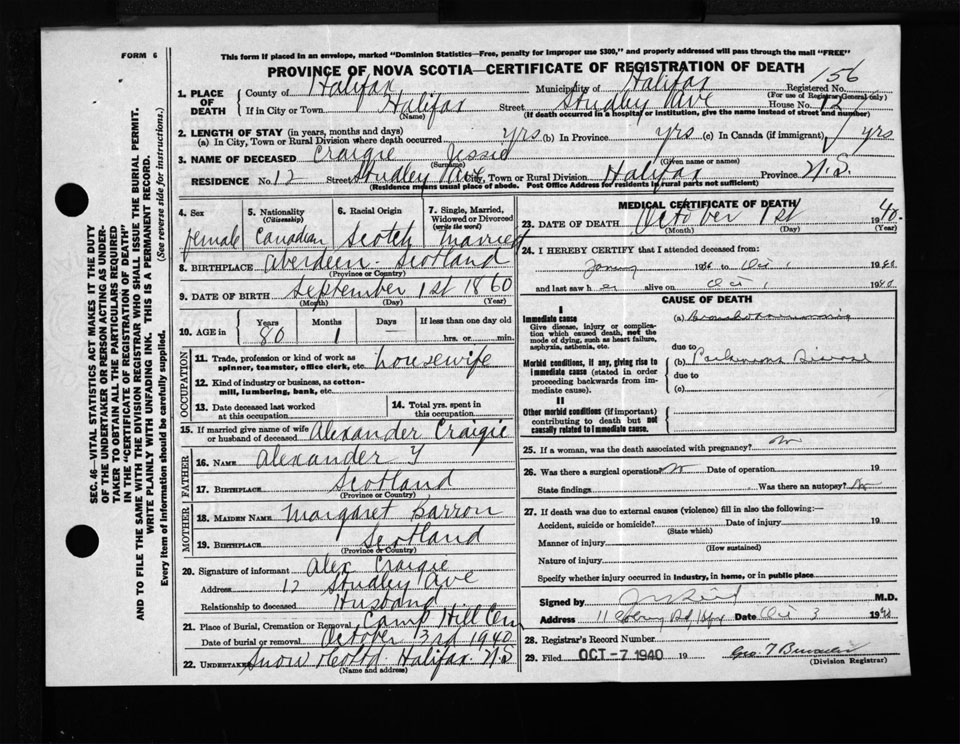 FORM 6
This form if placed in an envelope, marked "Dominion Statistics—Free, penalty for improper use $300," and properly addressed will pass through the mail "FREE"
PROVINCE OF NOVA SCOTIA—CERTIFICATE OF REGISTRATION OF DEATH
1. PLACE OF DEATH
County of Halifax Municipality of Halifax Registered No. 156
(For use of Registrar General only)
If in City or Town Halifax Street Studley Ave House No. 12
(Name) (If death occurred in a hospital or institution, give the name instead of street and number)
2. LENGTH OF STAY (in years, months and days)
(a) In City, Town or Rural Division where death occurred yrs (b) In Province yrs (c) In Canada (if immigrant) yrs
3. NAME OF DECEASED Craigie Jessie
(Surname) (Given name or names)
RESIDENCE No. 12 Street Studley Ave City, Town or Rural Division Halifax Province N.S.
(Residence means usual place of abode. Post Office Address for residents in rural parts not sufficient)
4. Sex female
5. Nationality (Citizenship) Canadian
6. Racial Origin Scotch
7. Single, Married, Widowed or Divorced (write the word) Married
8. BIRTHPLACE Aberdeen Scotland
(Province or Country)
9. DATE OF BIRTH September 1st 1860
(Month) (Day) (Year)
10. AGE in Years 80 Months 1 Days — If less than one day old hrs. or min.
OCCUPATION
11. Trade, profession or kind of work as spinner, teamster, office clerk, etc. housewife
12. Kind of industry or business, as cotton-mill, lumbering, bank, etc.
13. Date deceased last worked at this occupation
14. Total yrs. spent in this occupation
15. If married give name of wife or husband of deceased Alexander Craigie
FATHER
16. NAME Alexander
17. BIRTHPLACE Scotland
(Province or Country)
MOTHER
18. MAIDEN NAME Margaret Barron
19. BIRTHPLACE Scotland
(Province or Country)
20. Signature of informant Alex Craigie
Address 12 Studley Ave
Relationship to deceased Husband
21. Place of Burial, Cremation or Removal Camp Hill Cem
Date of burial or removal October 3rd 1940
22. UNDERTAKER Snow Halifax N.S
(Name and address)
MEDICAL CERTIFICATE OF DEATH
23. DATE OF DEATH October 1st 1940.
(Month) (Day) (Year)
24. I HEREBY CERTIFY that I attended deceased from:
19 to Oct 1 1940
and last saw her alive on Oct 1 1940
CAUSE OF DEATH
I
Immediate cause
Give disease, injury or complication which caused death, not the mode of dying, such as heart failure, asphyxia, asthenia, etc.
(a) Bronchopneumonia
due to
Morbid conditions, if any, giving rise to immediate cause (stated in order proceeding backwards from immediate cause).
(b) Parkinsons Disease
due to
(c)
II
Other morbid conditions (if important) contributing to death but not causally related to immediate cause.
25. If a woman, was the death associated with pregnancy? No
26. Was there a surgical operation? No Date of operation 19
State findings Was there an autopsy? No
27. If death was due to external causes (violence) fill in also the following:—
Accident, suicide or homicide? Date of injury 19
(State which)
Manner of injury
(How sustained)
Nature of injury
Specify whether injury occurred in industry, in home, or in public place
Signed by M.D.
Address Date Oct 3 1940
28. Registrar's Record Number
29. Filed OCT-7 1940 19 Geo. T
(Division Registrar)
SEC. 46—VITAL STATISTICS ACT MAKES IT THE DUTY
OF THE UNDERTAKER OR PERSON ACTING AS UNDER-
TAKER TO OBTAIN ALL THE PARTICULARS REQUIRED
IN THE "CERTIFICATE OF REGISTRATION OF DEATH"
AND TO FILE THE SAME WITH THE DIVISION REGISTRAR WHO SHALL ISSUE THE BURIAL PERMIT.
WRITE PLAINLY WITH UNFADING INK. THIS IS A PERMANENT RECORD.
Every item of information should be carefully supplied. (See reverse side for instructions.)